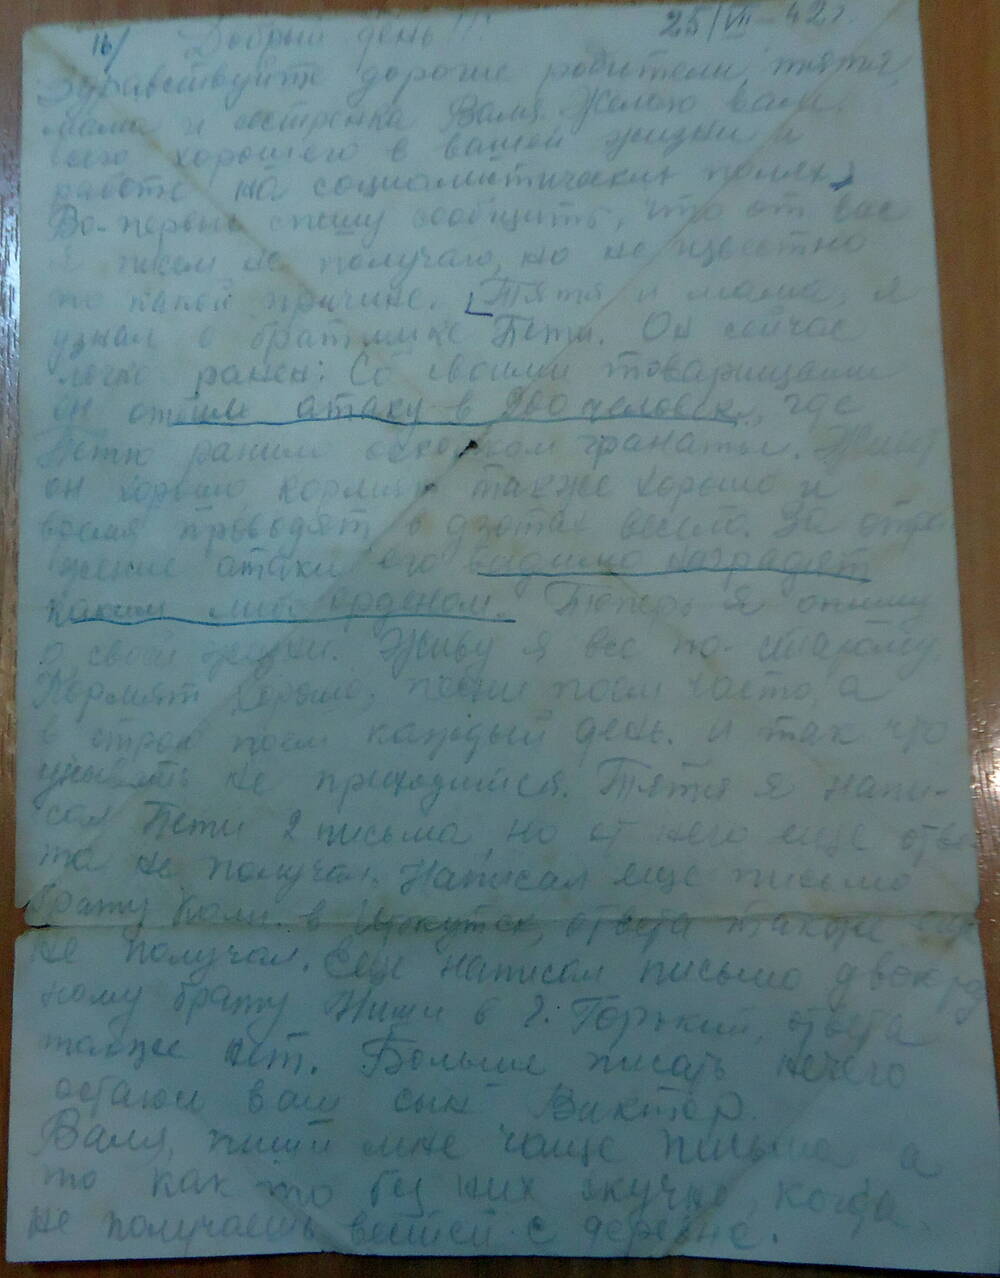 16/ Добрый день!!! 25/VII-42г.
Здравствуйте дорогие родители, тятя,
мама и сестренка Валя. Желаю вам
всего хорошего в вашей жизни и
работе на социалистических полях.
Во-первых спешу сообщить, что от вас
я писем не получаю, но не известно
по какой причине. Тятя и мама, я
узнал о братишке Пети. Он сейчас
легко ранен: Со своими товарищами
он отбил атаку в 200 человек, где
Петю ранило осколком гранаты. Живут
он хорошо кормят также хорошо и
время проводят в дзотах весело. За отра
жение атаки его видимо наградят
каким либо орденом. Теперь я опишу
о своей жизни. Живу я все по-старому.
Кормят хорошо, песни поем часто, а
в строю поем каждый день. и так что
унывать не приходится. Тятя я напи-
сал Пети 2 письма, но от него еще отве
та не получал. Написал еще письмо
брату Коли в Иркутск, ответа также еще
не получал. Еще написал письмо двоюрод
ному брату Мише в г. Горький, ответа
также нет. Больше писать нечего
остаюсь ваш сын Виктор.
Валя, пиши мне чаще письма а
то как то без них скучно, когда
не получаешь вестей с деревне.